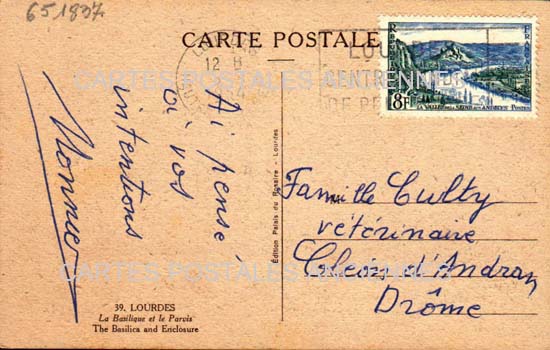 651807
CARTE POSTALE
12 H
LOU
CENTRE
DE PE
REPUBLIQUE FRANÇAISE
8F
LA VALLÉE DE LA SEINE AUX ANDELYS
POSTES
CARTES POSTALES ANCIENNES
Ai pensé
à vos
intentions
Monnier
Edition Palais du Rosaire - Lourdes
Famille Culty
vétérinaire
Cléon d'Andran
Drôme
CARTES POSTALES ANCIENNES
39. LOURDES
La Basilique et le Parvis
The Basilica and Enclosure